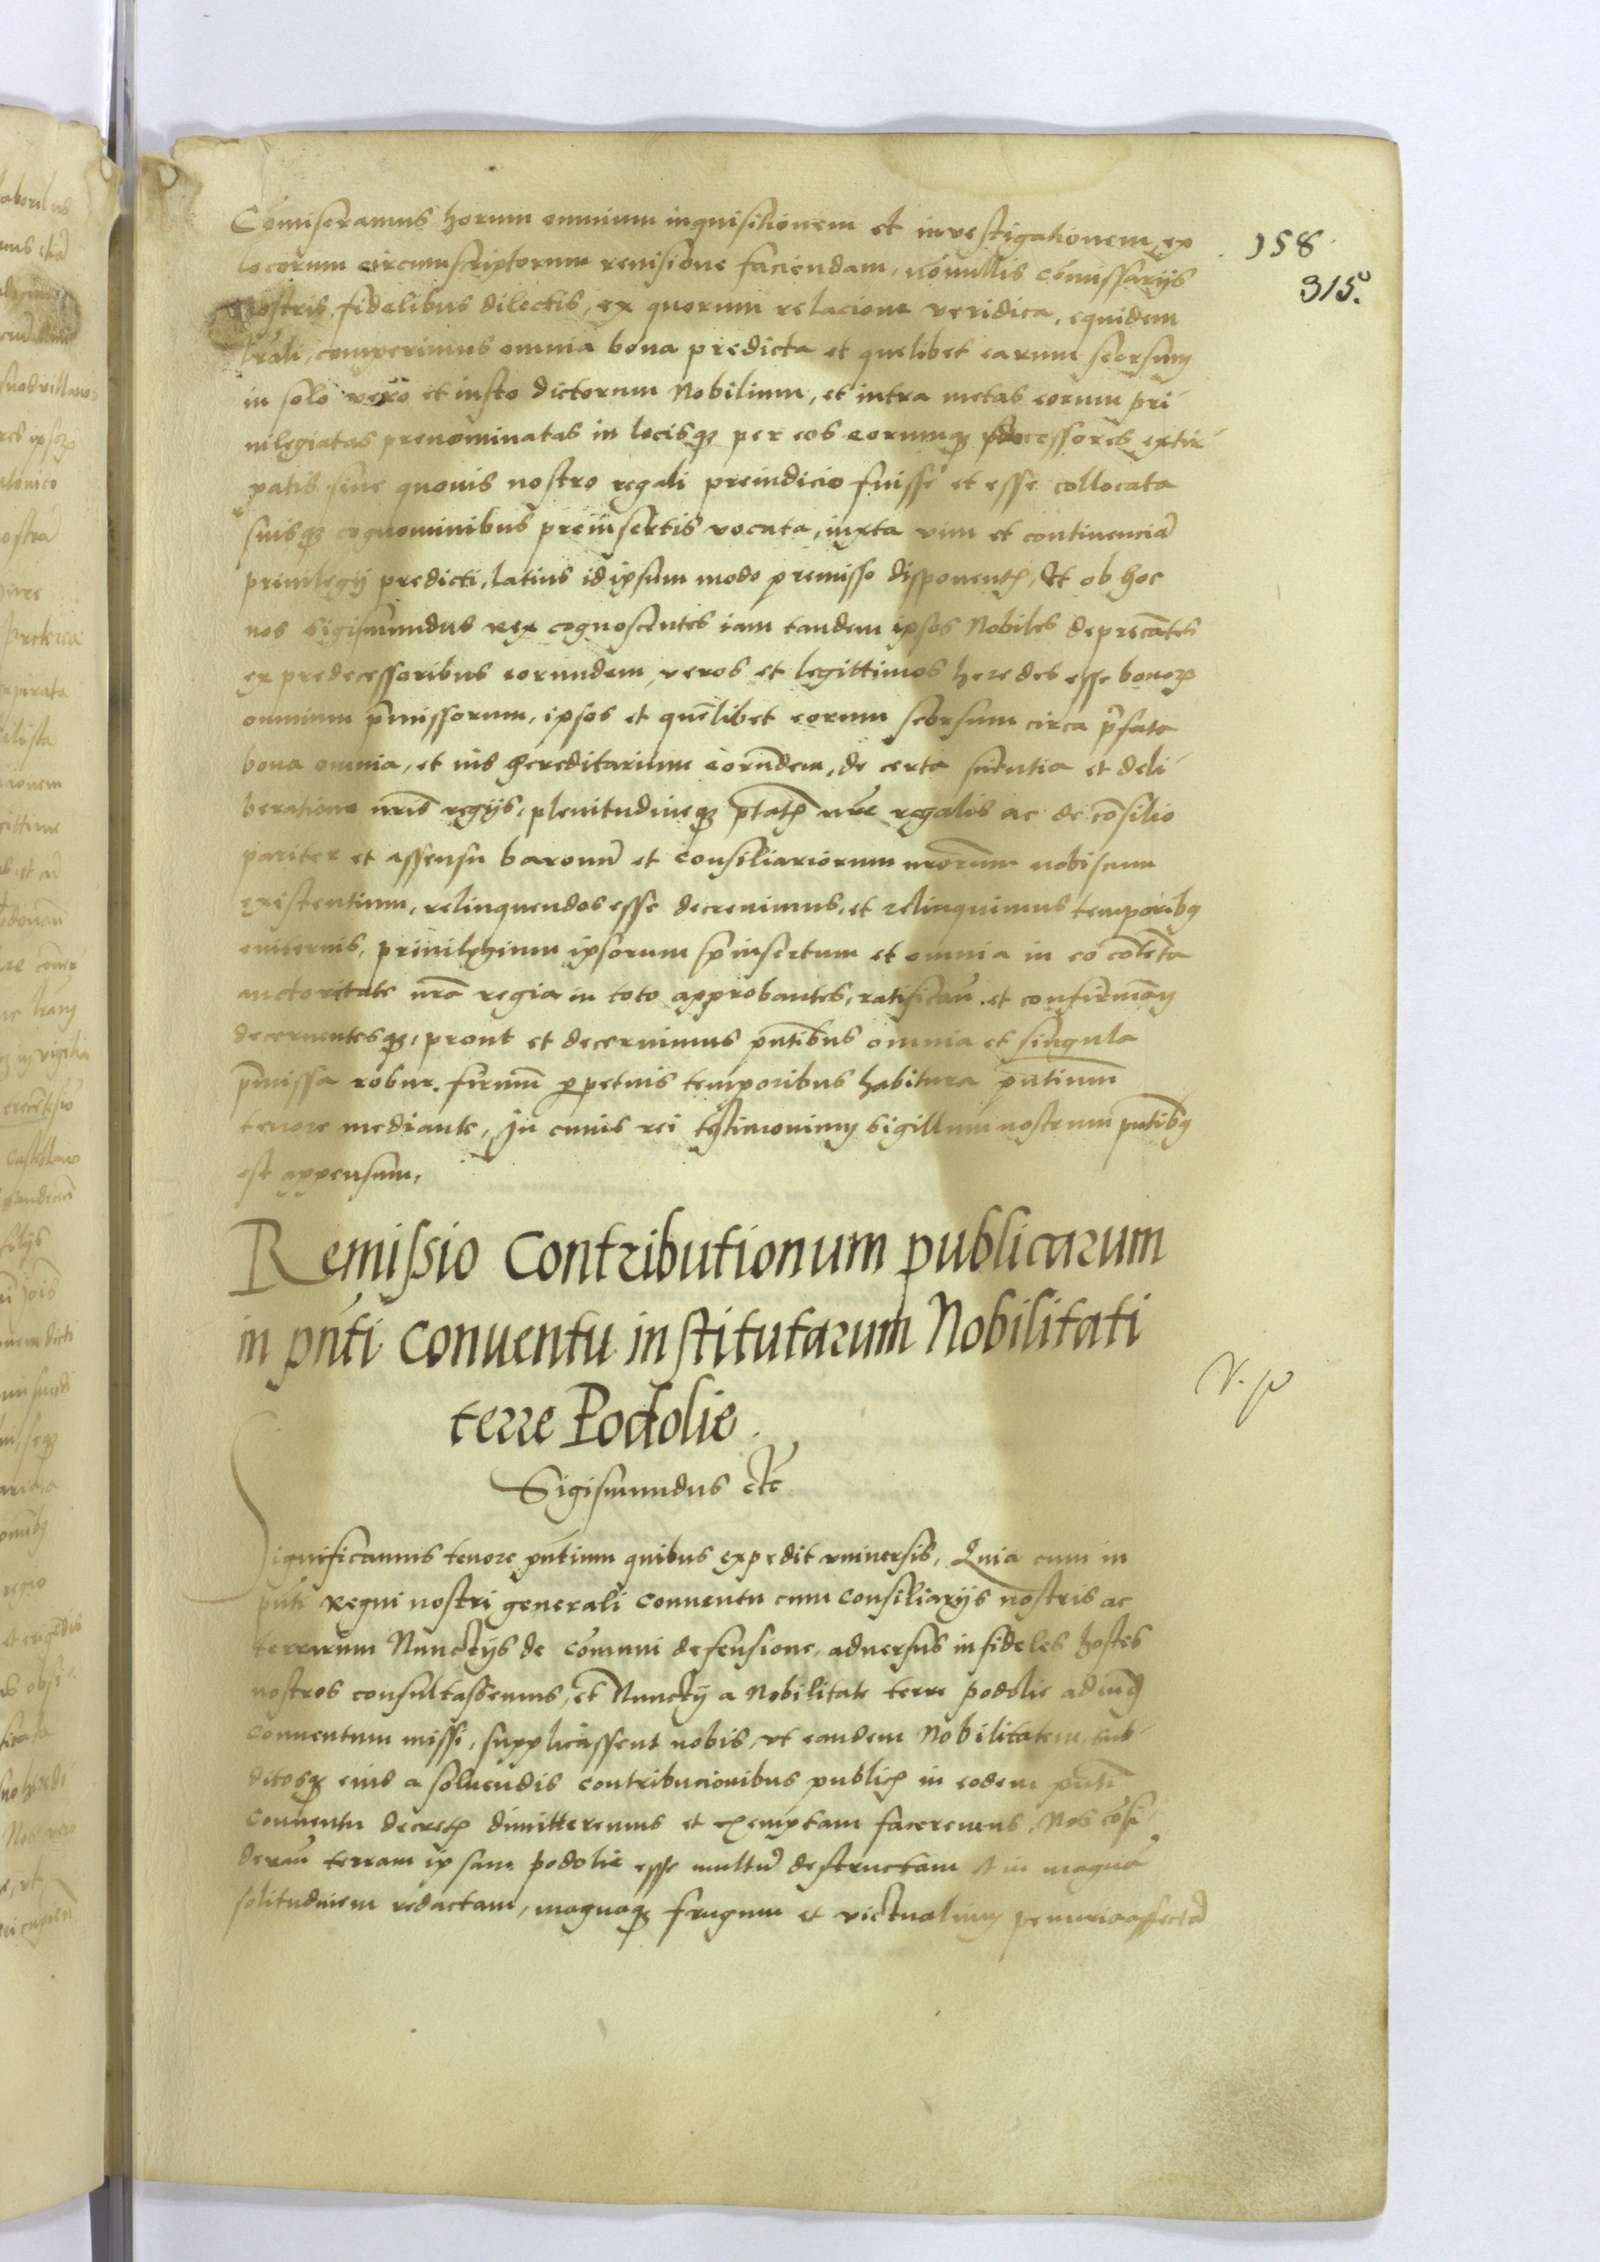 Cõmiseramus horum omnium inquisitionem et investigationem, ex
locorum circumscriptorum revisione faciendam, nõnullis cõmissarijs
nostris, fidelibus dilectis, ex quorum relacione veridica, equidem
lr̃ali, comperimus omnia bona predicta et quelibet earum seorsum
in solo vero et iusto dictorum Nobilium, et intra metas eorum pri
uilegiatas prenominatas in locisqꝫ per eos eorumqꝫ successores extir
patis sine quouis nostro regali preiudicio fuisse et esse collocata
suisqꝫ cognominibus preinsertis vocata, iuxta vim et continenciã
priuilegij predicti, latius id ipsum modo premisso disponentꝭ, Et ob hoc
nos Sigismundus rex cognoscentes iam tandem ipsos Nobiles deprecãtes
ex predecessoribus eorundem, veros et legittimos heredes esse bonoꝝ
omnium p̃missorum, ipsos et quẽlibet eorum seorsum circa p̃fata
bona omnia, et ius hereditarium eorũdem, de certa scientia et deli
beratione nr̃is regijs, plenitudineqꝫ p̃tatꝭ nr̃e regalis ac de cõsilio
pariter et assensu baronũ et consiliariorum nr̃orum nobiscum
existentium, relinquendos esse decreuimus, et relinquimus temporibꝰ
euiternis, priuilegium ipsorum p̃insertum et omnia in eo cõtẽta
auctoritate nr̃a regia in toto approbantes, ratificañ. et confirmañ
decernentesqꝫ, prout et decernimus pñtibus omnia et singula
p̃missa robur. firmũ perpetuis temporibus habitura pñtium
tenore mediante, In cuius rei testimonium sigillum nostrum pñtibꝰ
est appensum,
158
315.
Remissio Contributionum publicarum
in pñti Conuentu institutarum Nobilitati
terre Podolie.
Sigismundus etc̃
Significamus tenore pñtium quibus expedit vniuersis, Quia cum in
pñti Regni nostri generali conuentu cum consiliarijs nostris ac
terrarum Nunctijs de cõmuni defensione, aduersus infideles hostes
nostros consultassemus, et Nunctij a Nobilitate terre podolie ad eũdẽ
conuentum missi, supplicassent nobis, vt eandem Nobilitatem, sub
ditosqꝫ eius a soluendis contribucionibus publicꝭ in eodem pñti
conuentu decretꝭ dimitteremus et exemptam faceremus, Nos cõsi
derañ terram ipsam podolie esse multũ destructam et in magnã
solitudinem redactam, magnaqꝫ frugum et victualium penuria affectã